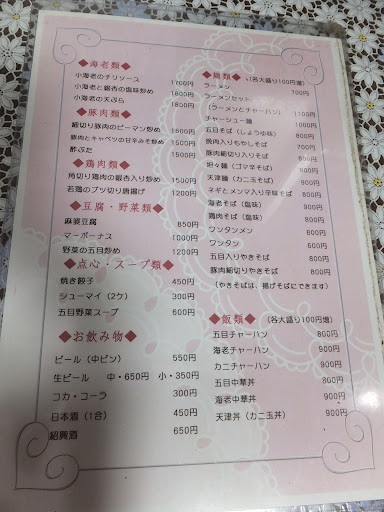 ◆海老類◆
小海老のチリソース 1700円
小海老と銀杏の塩味炒め 1800円
小海老の天ぷら 1800円
◆豚肉類◆
細切り豚肉のピーマン炒め 1500円
豚肉とキャベツの甘辛みそ炒め 1500円
酢ぶた 1500円
◆鶏肉類◆
角切り鶏肉の銀杏入り炒め 1500円
若鶏のブツ切り唐揚げ 1200円
◆豆腐・野菜類◆
麻婆豆腐 850円
マーボーナス 1000円
野菜の五目炒め 1200円
◆点心・スープ類◆
焼き餃子 450円
シューマイ(2ケ) 300円
五目野菜スープ 600円
◆お飲み物◆
ビール(中ビン) 550円
生ビール 中・650円 小・350円
コカ・コーラ 300円
日本酒(1合) 450円
紹興酒 650円
◆麺類◆(各大盛り100円増)
ラーメン 700円
ラーメンセット
(ラーメンとチャーハン) 1100円
チャーシュー麺 1000円
五目そば(しょうゆ味) 800円
挽肉入りもやしそば 900円
豚肉細切り入りそば 800円
坦々麺(ゴマ辛そば) 900円
天津麺(カニ玉そば) 900円
ネギとメンマ入り辛味そば 800円
海老そば(塩味) 900円
鶏肉そば(塩味) 900円
ワンタンメン 800円
ワンタン 600円
五目入りやきそば 800円
豚肉細切り入りやきそば 800円
(やきそばは、揚げそばにできます)
◆飯類◆(各大盛り100円増)
五目チャーハン 800円
海老チャーハン 900円
カニチャーハン 900円
五目中華丼 800円
海老中華丼 900円
天津丼(カニ玉丼) 900円